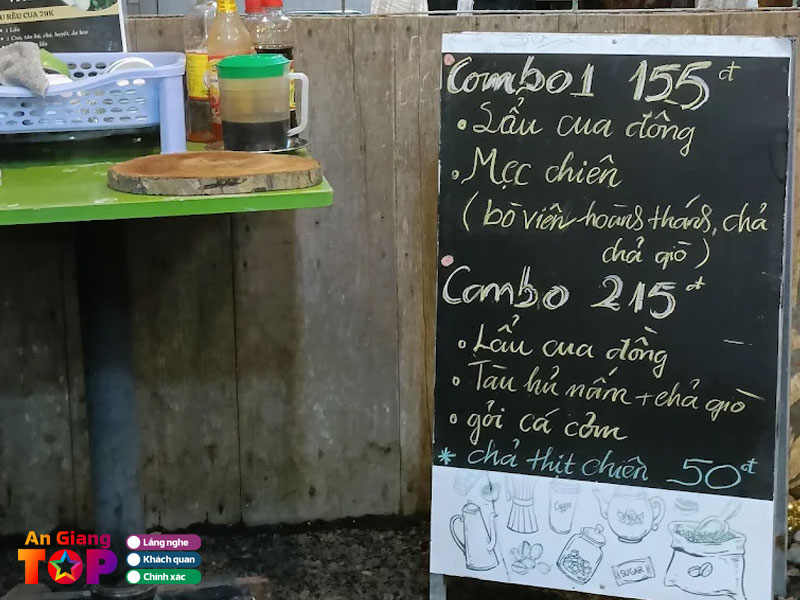 U RÊU CUA 79K
1 Lẩu
Combo1 155đ
• Lẩu cua đồng
• Mẹc chiên
(bò viên hoàng thánh, chả
chả giò)
Combo 215đ
• Lẩu cua đồng
• Tàu hủ nấm + chả giò
• gỏi cá cơm
* chả thịt chiên 50đ
Coffee
SUGAR
An Giang
TOP
Lắng nghe
Khách quan
Chính xác